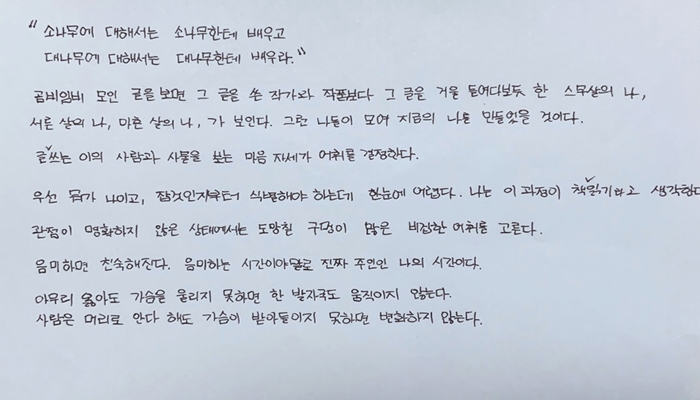 "소나무에 대해서는 소나무한테 배우고
대나무에 대해서는 대나무한테 배우라."
곰비임비 모인 글을 보면 그 글을 쓴 작가와 작품보다 그 글을 거울 들여다보듯 한 스무살의 나,
서른 살의 나, 마흔 살의 나, 가 보인다. 그런 나들이 모여 지금의 나를 만들었을 것이다.
글쓰는 이의 사람과 사물을 보는 마음 자세가 어휘를 결정한다.
우선 뭐가 나이고, 잡것인지부터 식별해야 하는데 한눈에 어렵다. 나는 이 과정이 책읽기라고 생각한다
관점이 명확하지 않은 상태에서는 도망칠 구멍이 많은 비겁한 어휘를 고른다.
음미하면 친숙해진다. 음미하는 시간이야말로 진짜 주인인 나의 시간이다.
아무리 옳아도 가슴을 울리지 못하면 한 발자국도 움직이지 않는다.
사람은 머리로 안다 해도 가슴이 받아들이지 못하면 변화하지 않는다.